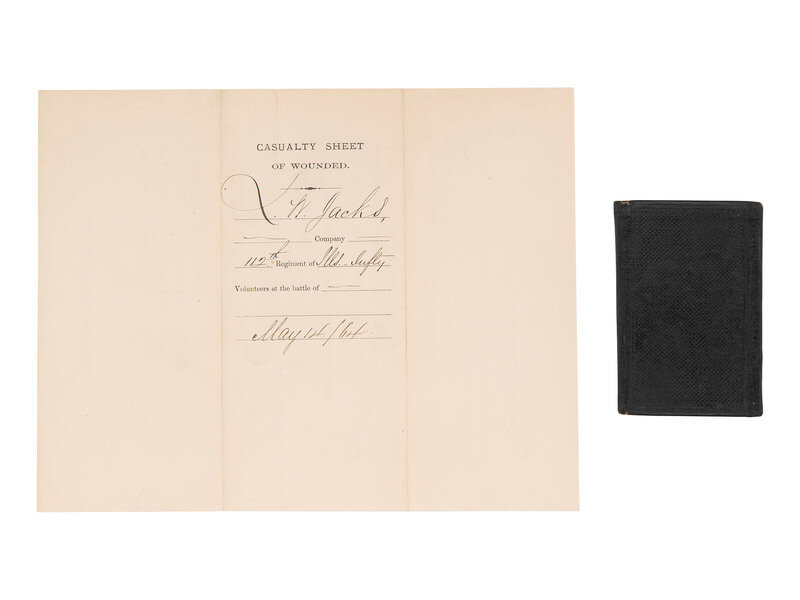 CASUALTY SHEET
OF WOUNDED.
L. W. Jacks,
Company
112th Regiment of Ills. Infty
Volunteers at the battle of
May 14/64.